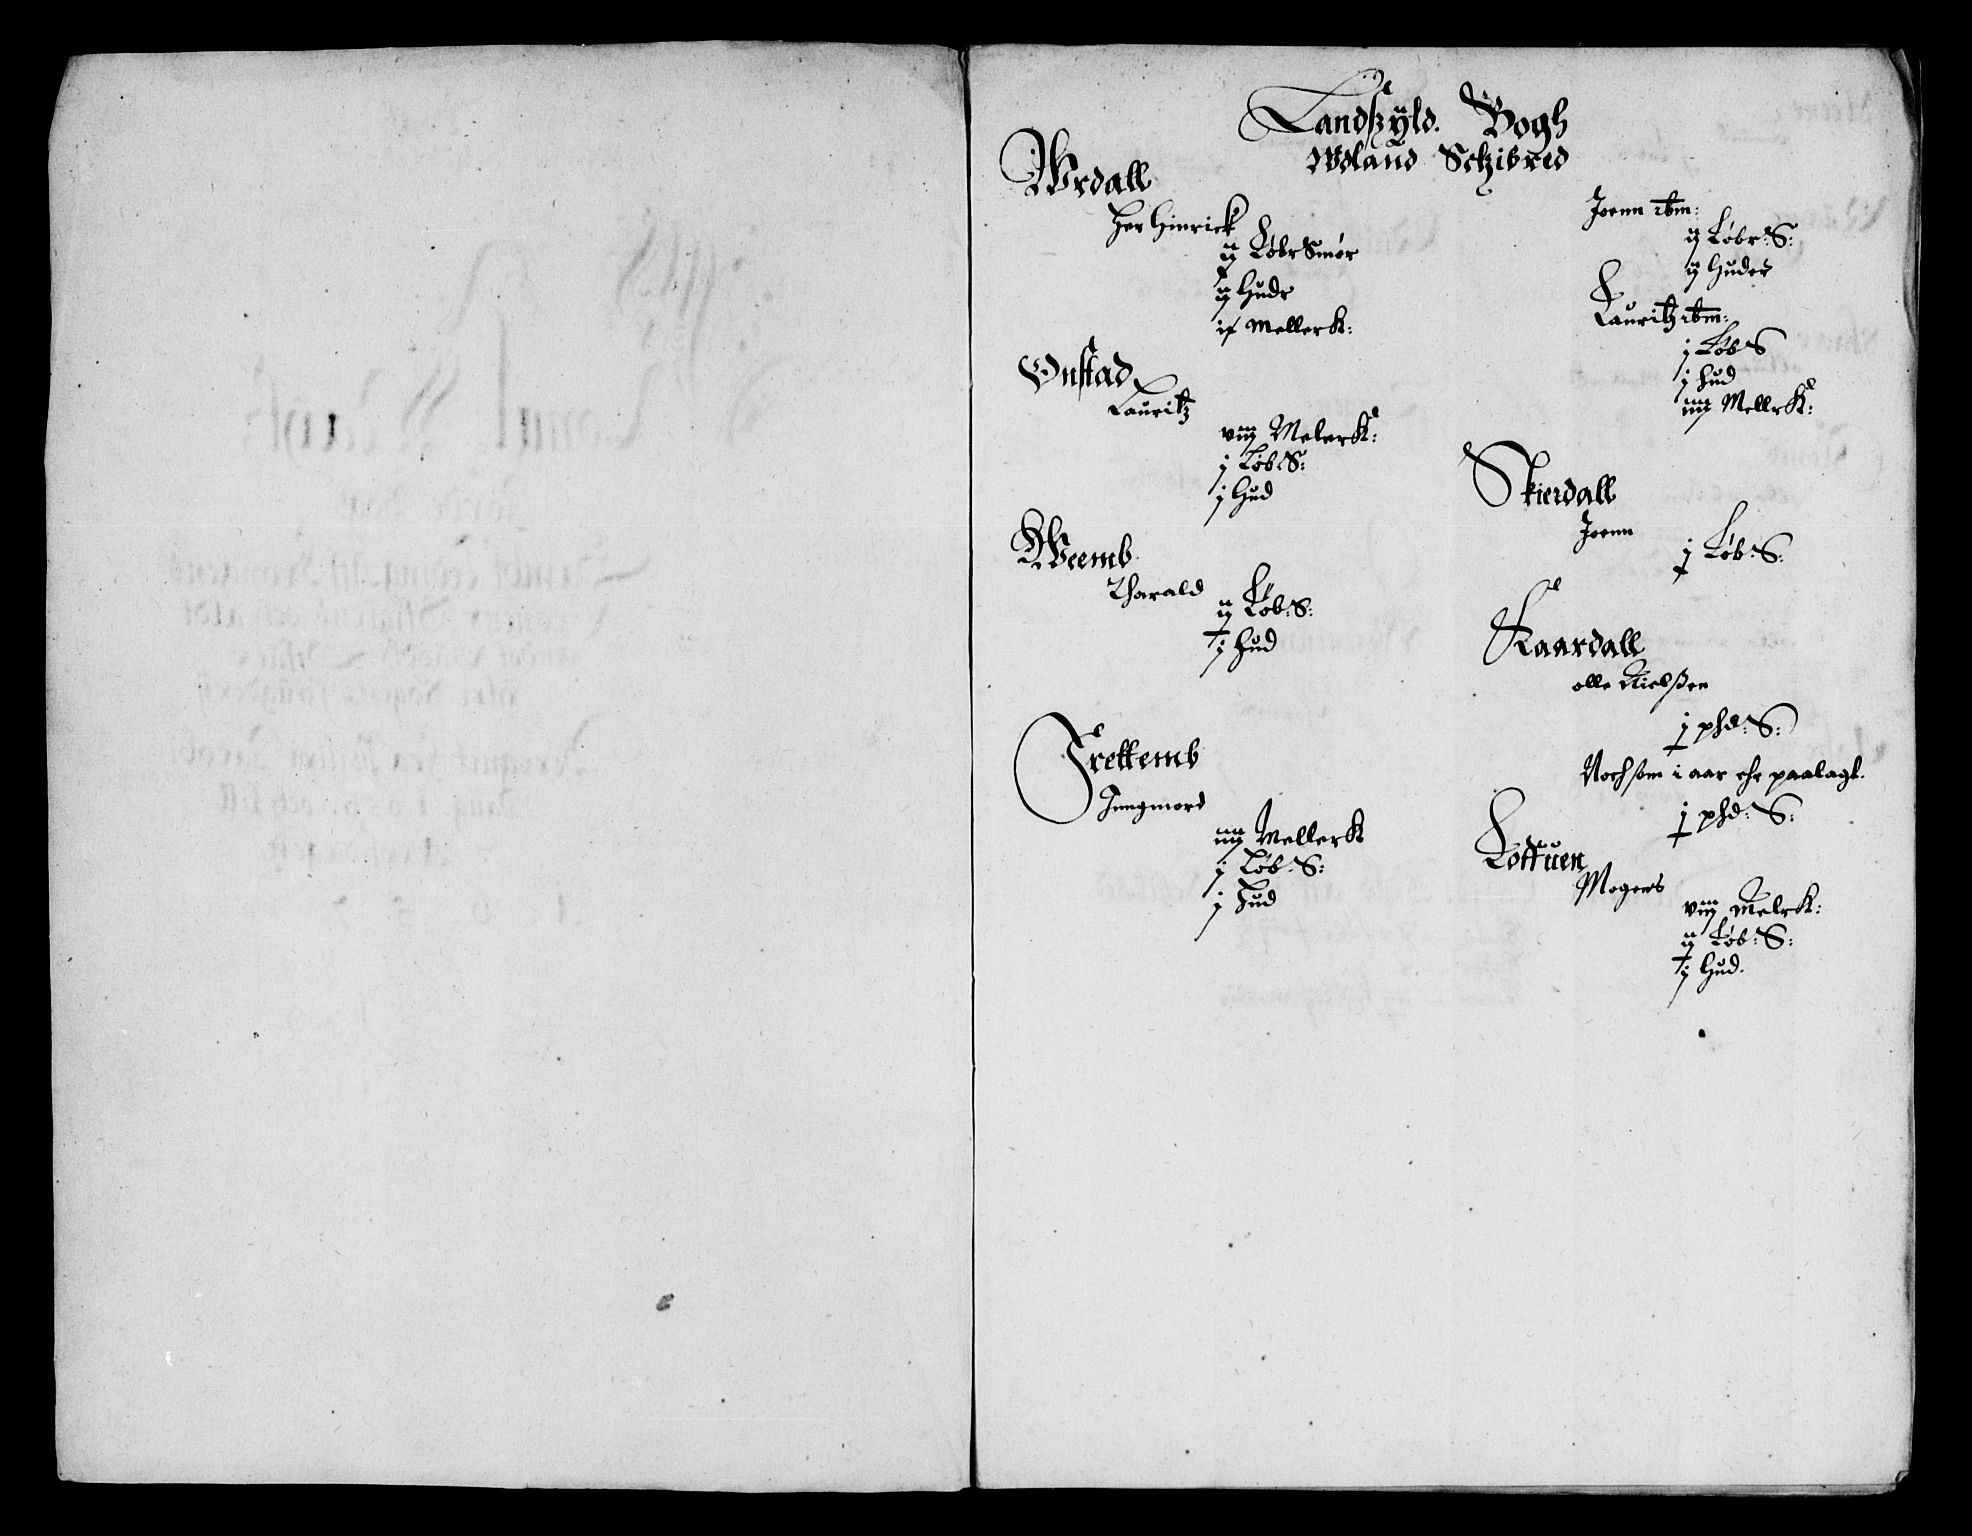 Landskyld Bogh
Wdland Schibred
Wrdall
Her Hinrick
ij Løbr Smør
ij Hude
ix Mellerk:
Onstad
Lauritz
viij Melerk:
j Løb S:
j Hud
Weemb
Tharald
ij Løb: S:
j Hud
Frettemb
Jungmord
iiij Mellerk
j Løb: S:
j Hud
Joenn ibm:
ij Løbr: S:
ij Huder
Lauritz ibm:
j Løb S
j Hud
iiij Mellrk:
Skierdall
Joenn
j Løb: S:
Kaardall
olle Nielsßen
j phd: S:
Noch som i aar ehr paalagt.
j phd: S:
Lottuen
Mogens
viij Melrk:
ij Løb: S:
j Hud.